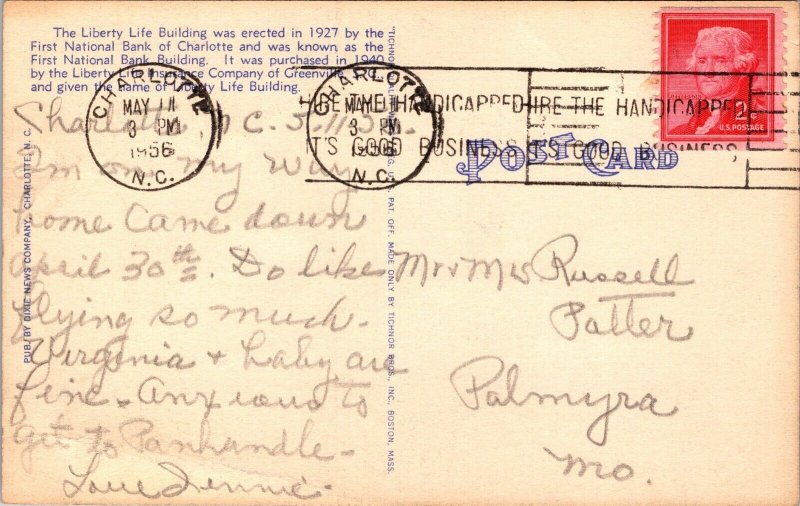 The Liberty Life Building was erected in 1927 by the
First National Bank of Charlotte and was known as the
First National Bank Building. It was purchased in 1940
by the Liberty Life Insurance Company of Greenville
and given the name of Liberty Life Building.
CHARLOTTE
MAY 11
3 PM
1956
N.C.
CHARLOTTE
MAY 11
3 PM
1956
N.C.
HIRE THE HANDICAPPED HIRE THE HANDICAPPED
IT'S GOOD BUSINESS IT'S GOOD BUSINESS
2¢
U.S. POSTAGE
POST CARD
Charlotte N C. 5-11-56
I'm on my way
home Came down
April 30th. Do like
flying so much.
Virginia + baby are
fine. Anxious to
get to Panhandle.
Love Jennie.
Mr & Mrs Russell
Patter
Palmyra
Mo.
PUB. BY DIXIE NEWS COMPANY, CHARLOTTE, N. C.
PAT. OFF. MADE ONLY BY TICHNOR BROS., INC., BOSTON, MASS.